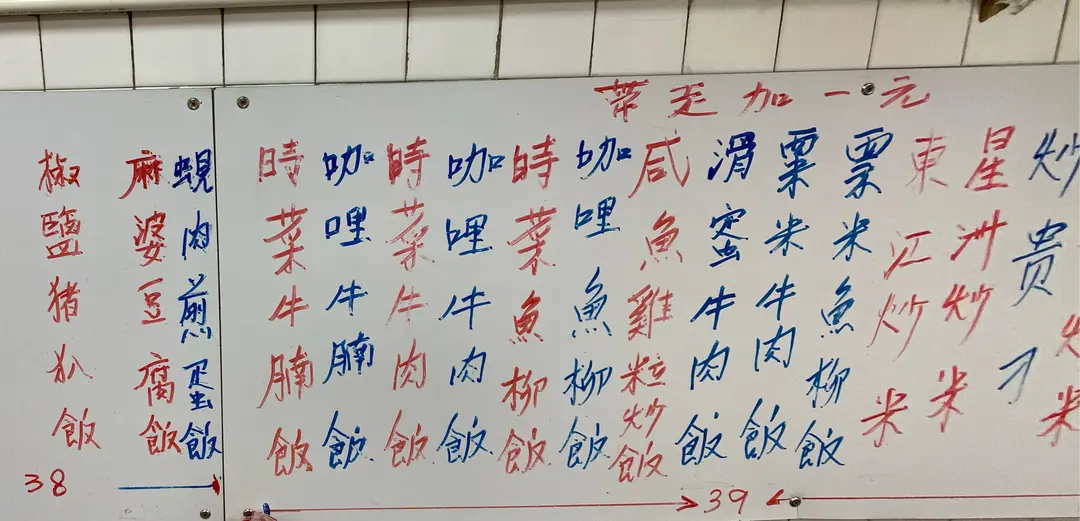 帶走加一元
炒贵刁
星洲炒米
東江炒米
粟米魚柳飯
粟米牛肉飯
滑蛋牛肉飯
咸魚雞粒炒飯
咖哩魚柳飯
時菜魚柳飯
咖哩牛肉飯
時菜牛肉飯
咖哩牛腩飯
時菜牛腩飯
39
蜆肉煎蛋飯
麻婆豆腐飯
椒鹽猪扒飯
38